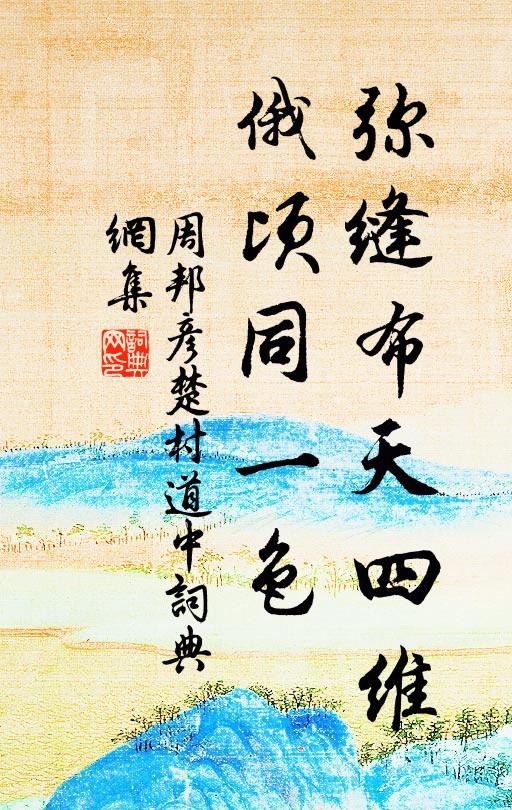 弥缝布天四维
俄顷同一色
周邦彦楚村道中詞典
網集
詞典
网印